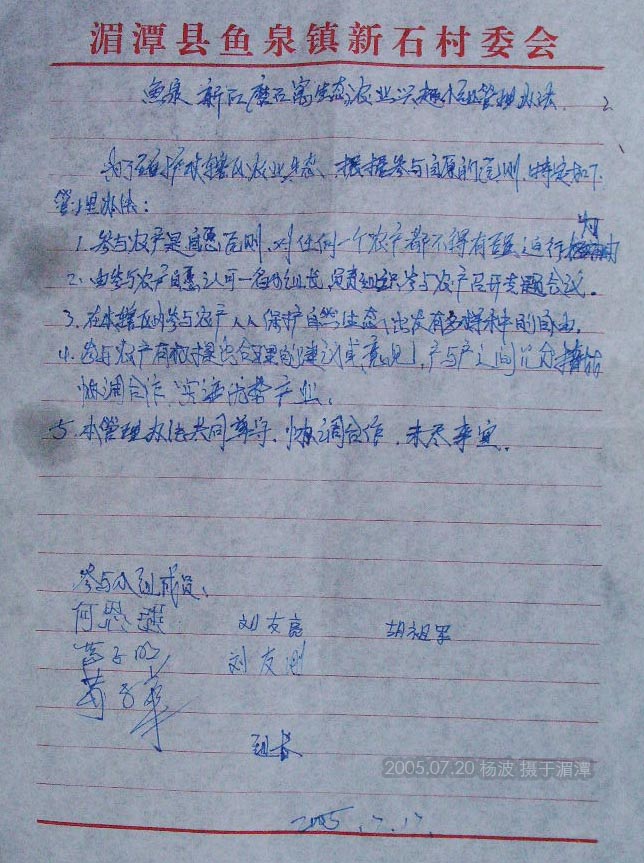 湄潭县鱼泉镇新石村委会
鱼泉新石磨石窝生态农业兴趣小组管理办法
为了 护 辖区农业生态、根据参与自愿的原则,特定如下
管理办法:
1. 参与农户是自愿原则,对任何一个农户都不得有强迫行为
2. 由参与农户自愿认可一名为组长,负责组织参与农户召开专题会议。
3. 在本辖区内参与农户人人保护自然生态、 有 的自由。
4. 参与农户有权提出合理的建议或意见,户与户之间
协调合作 产业。
5. 本管理办法共同尊守,协调合作,未尽事宜。
参与人组成员:
何恩
刘友亮
胡祖军
子明
刘友刚
子章
组长
2005.7.17.
2005.07.20 杨波 摄于湄潭